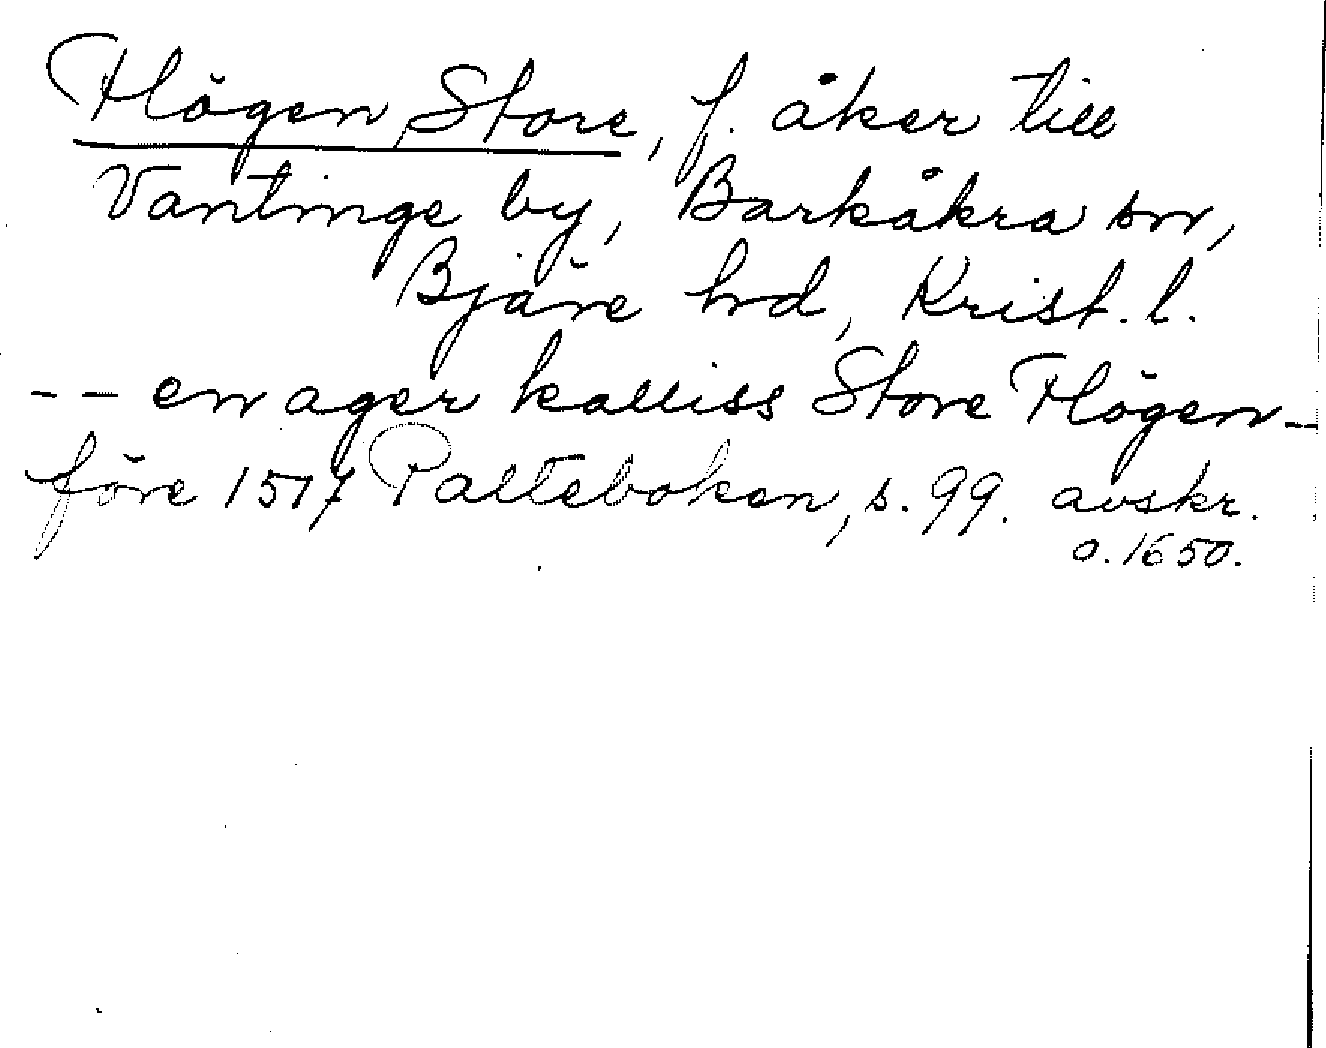 Högen, Store, f. åker till
Vantinge by, Barkåkra sn,
Bjäre hd, Krist. l.
-- en ager kalliss Store Högen --
före 1517 Palteboken, s. 99. avskr.
o. 1650.